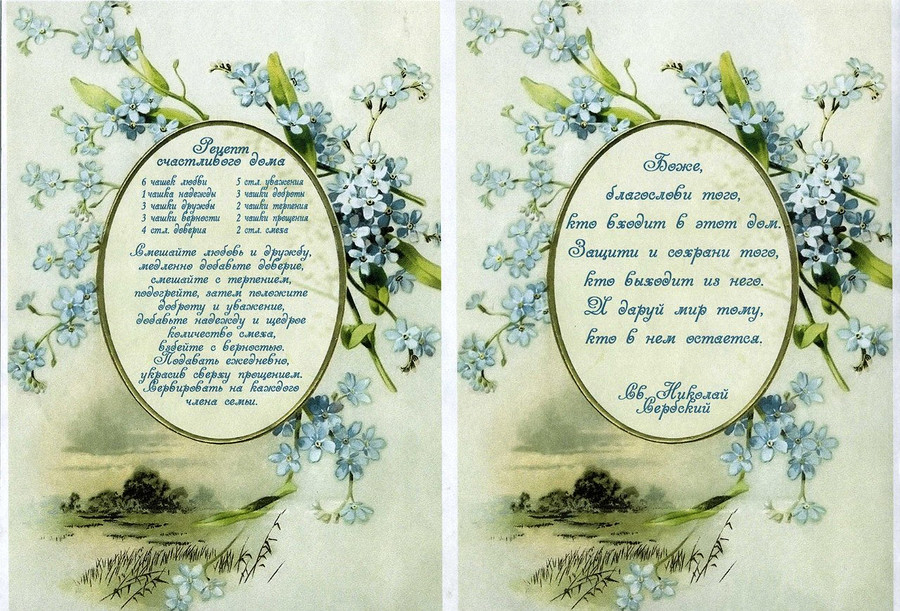 Рецепт
счастливого дома
6 чашек любви 5 стл. уважения
1 чашка надежды 3 чашки доброты
3 чашки дружбы 2 чашки терпения
3 чашки верности 2 чашки прощения
4 стл. доверия 2 стл. смеха
Смешайте любовь и дружбу,
медленно добавьте доверие,
смешайте с терпением,
подогрейте, затем положите
доброту и уважение,
добавьте надежду и щедрое
количество смеха,
взбейте с верностью.
Подавать ежедневно,
украсив сверху прощением.
Сервировать на каждого
члена семьи.
Боже,
благослови того,
кто входит в этот дом.
Защити и сохрани того,
кто выходит из него.
И даруй мир тому,
кто в нем остается.
Св. Николай
Сербский